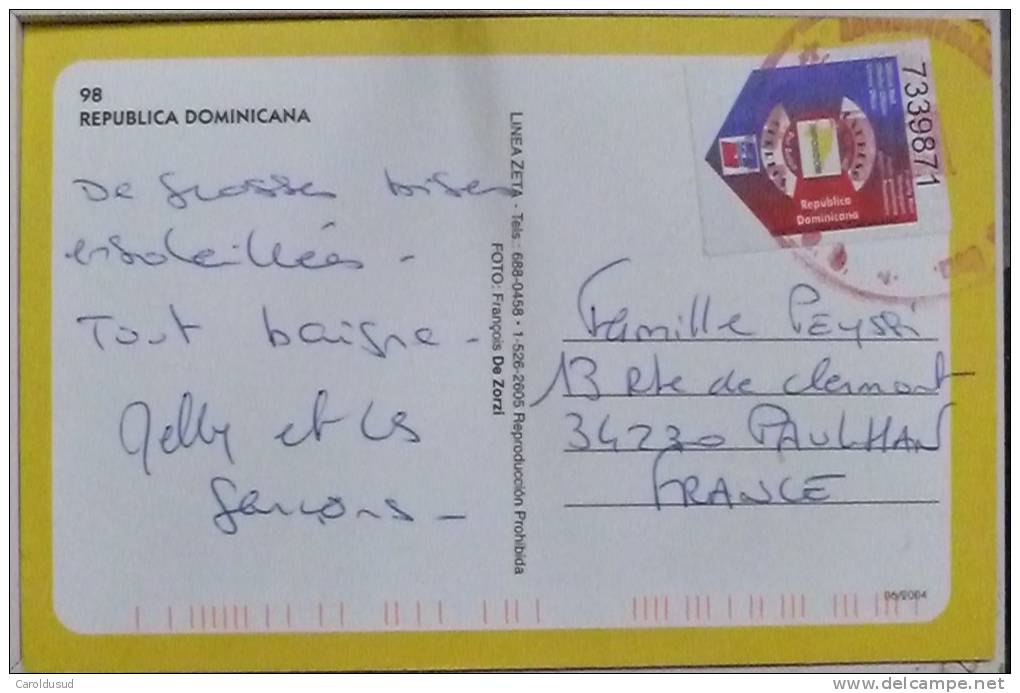 98
REPUBLICA DOMINICANA
De grosses bises
ensoleillées -
Tout baigne -
et les
garçons -
LINEA ZETA - Tels.: 688-0458 • 1-526-2605 Reproducción Prohibida
FOTO: François De Zorzi
7339871
República
Dominicana
Famille
13 Rte de clermont
34230 PAULHAN
FRANCE
06/2004
Caroldusud
delcampe.net